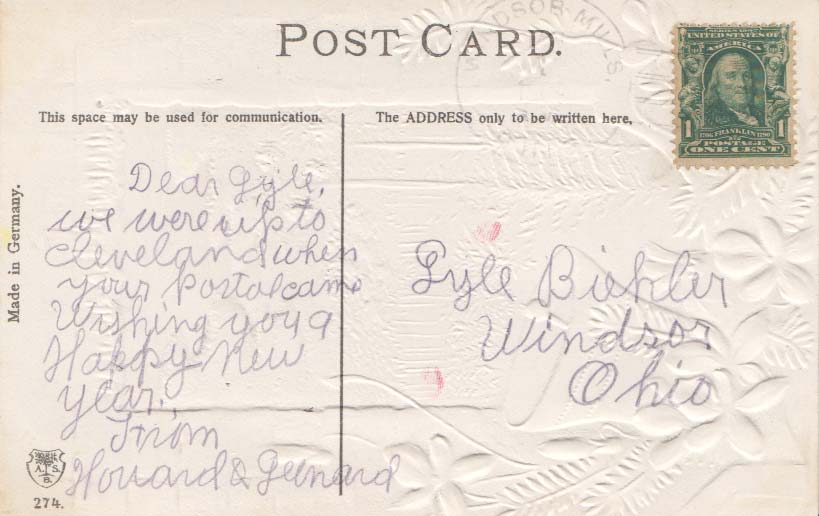 POST CARD.
WINDSOR MILLS
SERIES 1902
UNITED STATES OF
AMERICA
1 1
1706 FRANKLIN 1790
POSTAGE
ONE CENT
This space may be used for communication.
The ADDRESS only to be written here,
Made in Germany.
Dear Lyle,
we were up to
Cleveland when
your Postal came
Wishing you a
Happy New
Year.
From
Howard & Geenard
Lyle Biehler
Windsor
Ohio
A. S.
B.
274.